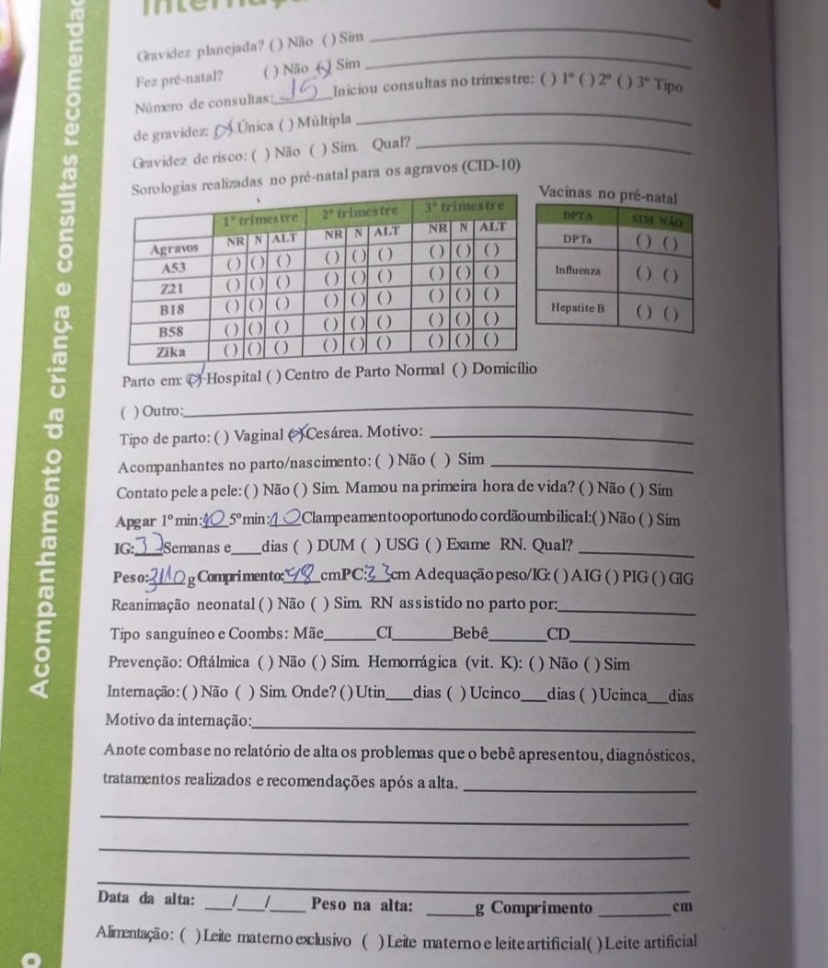 Acompanhamento da criança e consultas
Gravidez planejada? ( ) Não ( ) Sim
Fez pré-natal? ( ) Não (x) Sim
Número de consultas: 15 Iniciou consultas no trimestre: ( ) 1º ( ) 2º ( ) 3º Tipo
de gravidez: (x) Única ( ) Múltipla
Gravidez de risco: ( ) Não ( ) Sim. Qual?
Sorologias realizadas no pré-natal para os agravos (CID-10)
1º trimestre 2º trimestre 3º trimestre
Agravos NR N ALT NR N ALT NR N ALT
A53 ( ) ( ) ( ) ( ) ( ) ( ) ( ) ( ) ( )
Z21 ( ) ( ) ( ) ( ) ( ) ( ) ( ) ( ) ( )
B18 ( ) ( ) ( ) ( ) ( ) ( ) ( ) ( ) ( )
B58 ( ) ( ) ( ) ( ) ( ) ( ) ( ) ( ) ( )
Zika ( ) ( ) ( ) ( ) ( ) ( ) ( ) ( ) ( )
Vacinas no pré-natal
DPTA SIM NÃO
DPTa ( ) ( )
Influenza ( ) ( )
Hepatite B ( ) ( )
Parto em: (x) Hospital ( ) Centro de Parto Normal ( ) Domicílio
( ) Outro:
Tipo de parto: ( ) Vaginal (x) Cesárea. Motivo:
Acompanhantes no parto/nascimento: ( ) Não ( ) Sim
Contato pele a pele: ( ) Não ( ) Sim. Mamou na primeira hora de vida? ( ) Não ( ) Sim
Apgar 1º min: 10 5º min: 10 Clampeamento oportuno do cordão umbilical: ( ) Não ( ) Sim
IG: Semanas e dias ( ) DUM ( ) USG ( ) Exame RN. Qual?
Peso: g Comprimento: 48 cm PC: 33 cm Adequação peso/IG: ( ) AIG ( ) PIG ( ) GIG
Reanimação neonatal ( ) Não ( ) Sim. RN assistido no parto por:
Tipo sanguíneo e Coombs: Mãe CI Bebê CD
Prevenção: Oftálmica ( ) Não ( ) Sim. Hemorrágica (vit. K): ( ) Não ( ) Sim
Internação: ( ) Não ( ) Sim. Onde? ( ) Utin dias ( ) Ucinco dias ( ) Ucinca dias
Motivo da internação:
Anote com base no relatório de alta os problemas que o bebê apresentou, diagnósticos,
tratamentos realizados e recomendações após a alta.
Data da alta: / / Peso na alta: g Comprimento cm
Alimentação: ( ) Leite materno exclusivo ( ) Leite materno e leite artificial ( ) Leite artificial